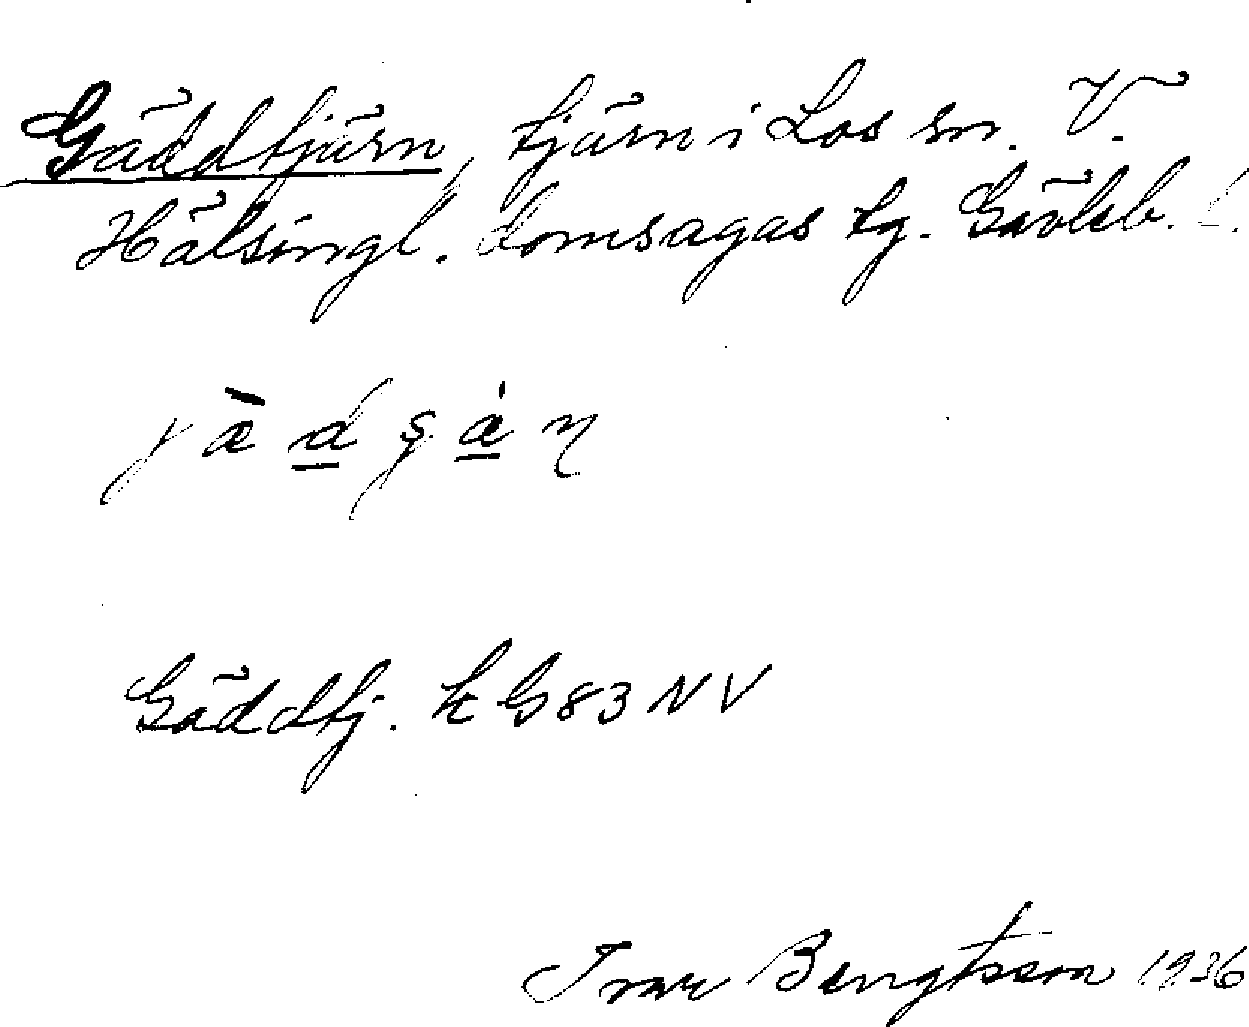 Gäddtjärn, tjärn i Los sn. V.
Hälsingl. domsagas tg. Gävleb. l.
Gäddtj. k G83 NV
Ivar Bengtsson 1936